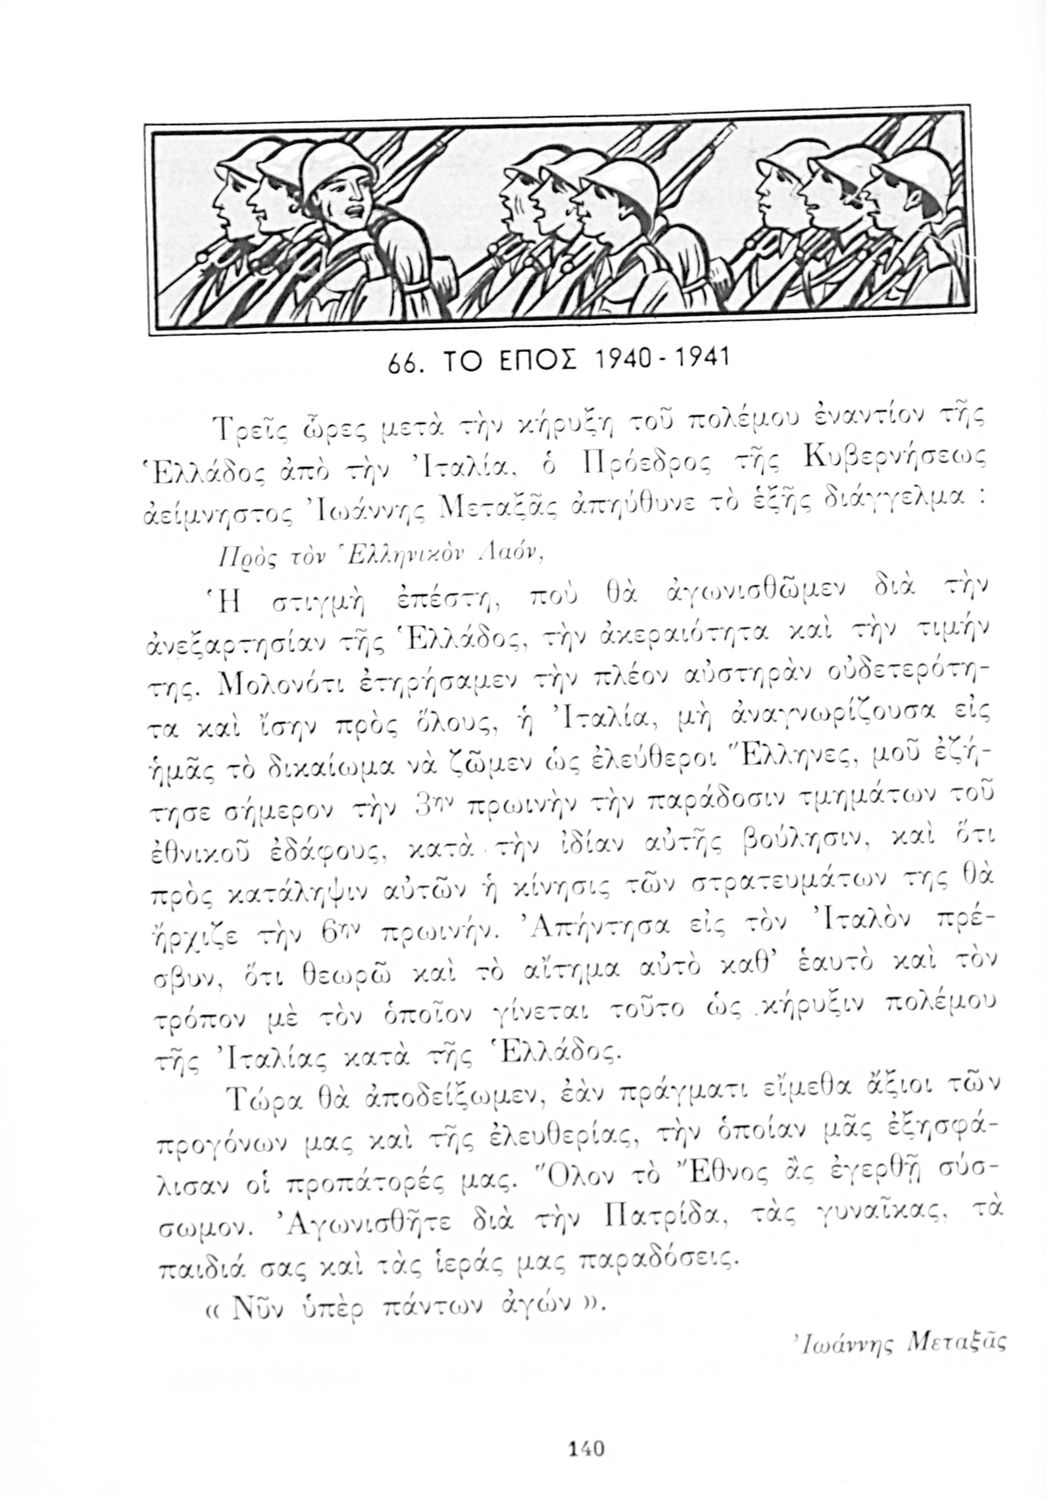 66. ΤΟ ΕΠΟΣ 1940 - 1941
Τρεῖς ὧρες μετὰ τὴν κήρυξη τοῦ πολέμου ἐναντίον τῆς
Ἑλλάδος ἀπὸ τὴν Ἰταλία, ὁ Πρόεδρος τῆς Κυβερνήσεως
ἀείμνηστος Ἰωάννης Μεταξᾶς ἀπηύθυνε τὸ ἑξῆς διάγγελμα :
Πρὸς τὸν Ἑλληνικὸν Λαόν,
Ἡ στιγμὴ ἐπέστη, ποὺ θὰ ἀγωνισθῶμεν διὰ τὴν
ἀνεξαρτησίαν τῆς Ἑλλάδος, τὴν ἀκεραιότητα καὶ τὴν τιμήν
της. Μολονότι ἐτηρήσαμεν τὴν πλέον αὐστηρὰν οὐδετερότη-
τα καὶ ἴσην πρὸς ὅλους, ἡ Ἰταλία, μὴ ἀναγνωρίζουσα εἰς
ἡμᾶς τὸ δικαίωμα νὰ ζῶμεν ὡς ἐλεύθεροι Ἕλληνες, μοῦ ἐζή-
τησε σήμερον τὴν 3ην πρωινὴν τὴν παράδοσιν τμημάτων τοῦ
ἐθνικοῦ ἐδάφους, κατὰ τὴν ἰδίαν αὐτῆς βούλησιν, καὶ ὅτι
πρὸς κατάληψιν αὐτῶν ἡ κίνησις τῶν στρατευμάτων της θὰ
ἤρχιζε τὴν 6ην πρωινήν. Ἀπήντησα εἰς τὸν Ἰταλὸν πρέ-
σβυν, ὅτι θεωρῶ καὶ τὸ αἴτημα αὐτὸ καθ’ ἑαυτὸ καὶ τὸν
τρόπον μὲ τὸν ὁποῖον γίνεται τοῦτο ὡς κήρυξιν πολέμου
τῆς Ἰταλίας κατὰ τῆς Ἑλλάδος.
Τώρα θὰ ἀποδείξωμεν, ἐὰν πράγματι εἴμεθα ἄξιοι τῶν
προγόνων μας καὶ τῆς ἐλευθερίας, τὴν ὁποίαν μᾶς ἐξησφά-
λισαν οἱ προπάτορές μας. Ὅλον τὸ Ἔθνος ἂς ἐγερθῇ σύσ-
σωμον. Ἀγωνισθῆτε διὰ τὴν Πατρίδα, τὰς γυναῖκας, τὰ
παιδιά σας καὶ τὰς ἱεράς μας παραδόσεις.
« Νῦν ὑπὲρ πάντων ἀγών ».
Ἰωάννης Μεταξᾶς
140